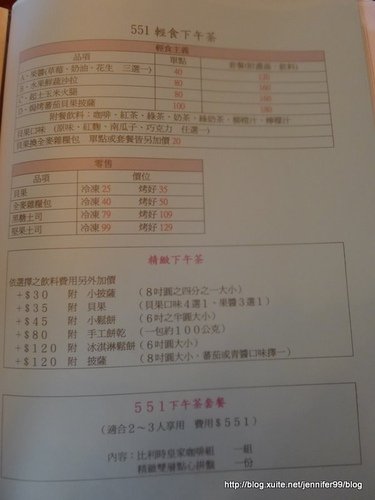 551 輕食下午茶
輕食主義
品項 單點 套餐(附濃湯、飲料)
A、果醬(草莓、奶油、花生 三選一) 40 120
B、水果鮮蔬沙拉 80 160
C、起士玉米火腿 80 160
D、焗烤蕃茄貝果披薩 100 180
附餐飲料：咖啡、紅茶、綠茶、奶茶、綠奶茶、柳橙汁、檸檬汁
貝果口味 (原味、紅麴、南瓜子、巧克力 任選一)
貝果換全麥雜糧包 單點或套餐皆另加價 20
零售
品項 價位
貝果 冷凍 25 烤好 35
全麥雜糧包 冷凍 40 烤好 50
黑糖土司 冷凍 79 烤好 109
堅果土司 冷凍 99 烤好 129
精緻下午茶
依選擇之飲料費用另外加價
+$30 附 小披薩 (8吋圓之四分之一大小)
+$35 附 貝果 (貝果口味4選1、果醬3選1)
+$45 附 小鬆餅 (6吋之半圓大小)
+$80 附 手工餅乾 (一包約100公克)
+$120 附 冰淇淋鬆餅 (6吋圓大小)
+$120 附 披薩 (8吋圓大小，蕃茄或青醬口味擇一)
551下午茶套餐
(適合2～3人享用 費用$551)
內容：比利時皇家咖啡組 一組
精緻雙層點心拼盤 一份
http://blog.xuite.net/jennifer99/blog